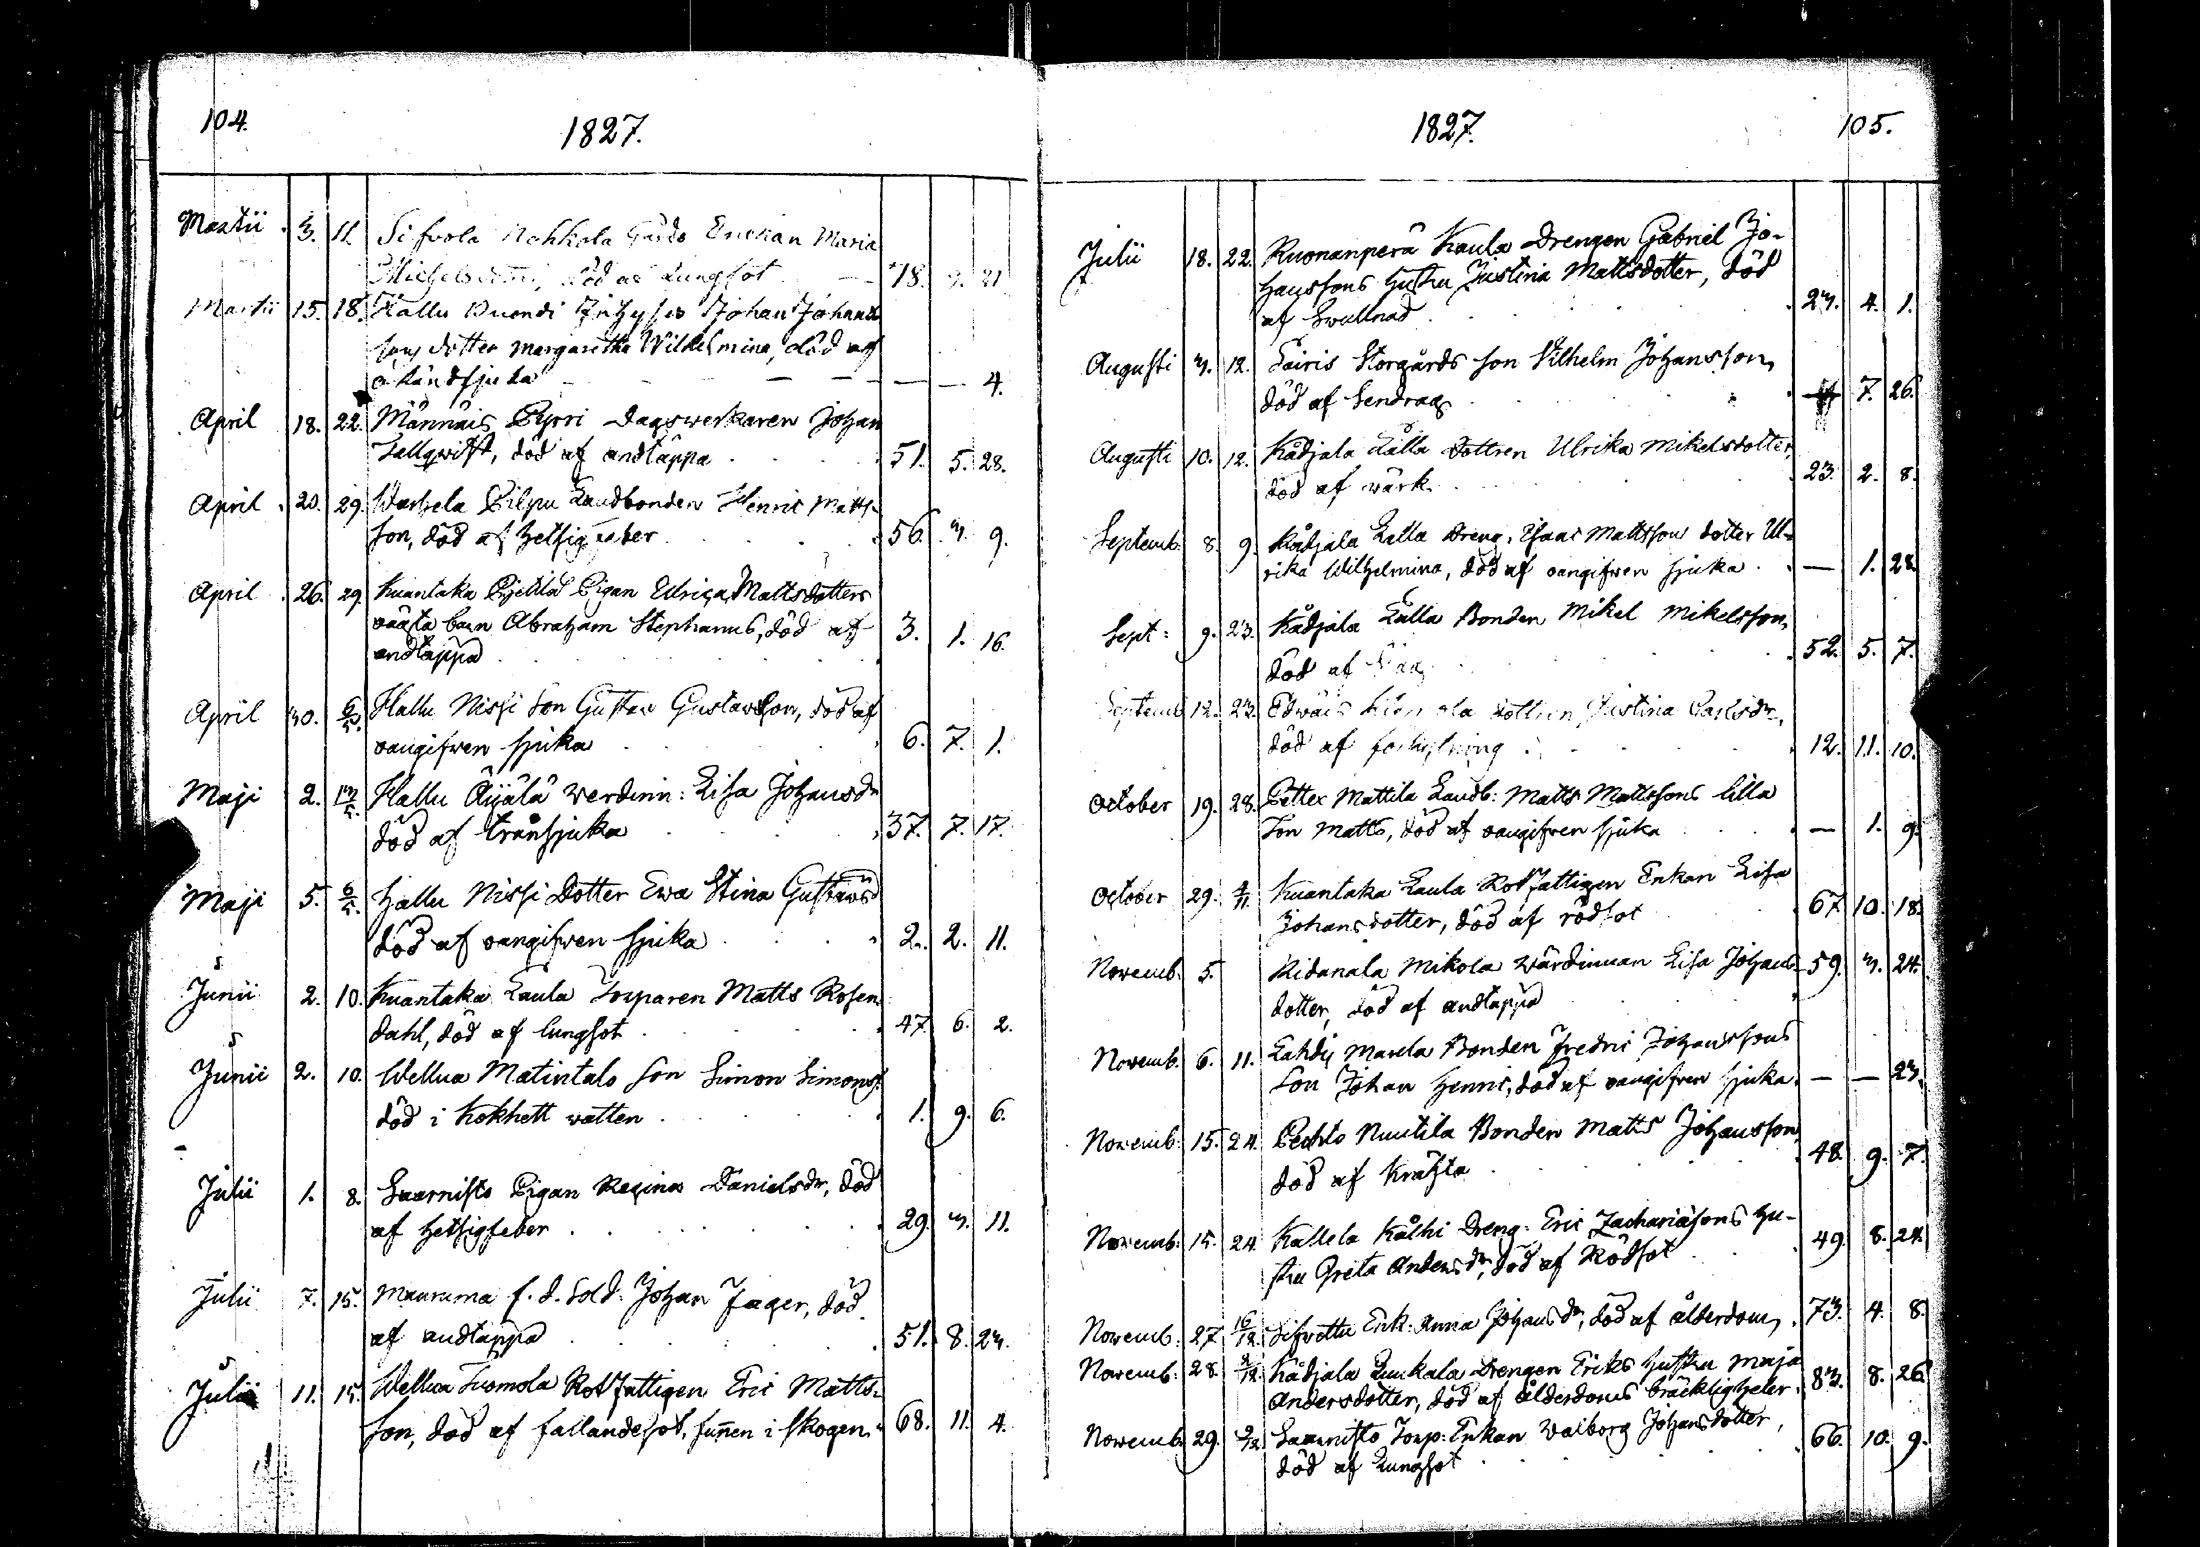 104.
1827.
Martii 3. 11. Sifvola Nohkola Gårds Enckan Maria
Michelsdotter, död af Lungsot 78. 3. 21
Martii 15. 18. Hallu Johan Johans
sons dotter Margaretha Wilhelmina, död af
okänd sjuka — — — — — 4.
April 18. 22. Männäis Pyöri Dagswerkaren Johan
Hallqwist, död af andtäppa 51. 5. 28.
April 20. 29. Warhela Pilpu Landbonden Henric Matts-
son, död af hetsig feber 56. 3. 9.
April 26. 29. Kuantaka Pigan Ulrica Mattsdotters
oäkta barn Abraham Stephanus, död af
andtäppa 3. 1. 16.
April 30. 6/5. Hallu Nissi Son Gustav Gustavsson, död af
oangifwen sjuka 6. 7. 1.
Maji 2. 13/5. Hallu Äijälä werdinn: Lisa Johansdr
död af transjuka 37. 7. 17.
Maji 5. 6/5. Hallu Nissi Dotter Ewa Stina Gustawsd
död af oangifwen sjuka 2. 2. 11.
Junii 2. 10. Kuantaka Laula Torparen Matts Rosen
dahl, död af lungsot 47. 6. 2.
Junii 2. 10. Wellua Matintalo Son Simon Simonss.
död i kokhett watten 1. 9. 6.
Julii 1. 8. Saarnisto Pigan Regina Danielsdr, död
af hetsig feber 29. 3. 11.
Julii 7. 15. Mauruma f. d. Sold: Johan Jager, död
af andtäppa 51. 8. 23.
Julii 11. 15. Wellua Tuomola Rotfattigen Eric Matts-
son, död af fallandesot, funnen i skogen. 68. 11. 4.
1827.
105.
Julii 18. 22. Ruonanperä Kaula Drengen Gabriel Jo-
hanssons hustru Justina Mattsdotter, död
af Swullnad 23. 4. 1.
Augusti 3. 12. Lairis Storgårds son Vilhelm Johansson,
död af Sendrag 7. 26.
Augusti 10. 12. Kådjala Lålla dottren Ulrika Mikelsdotter,
död af wärk 23. 2. 8.
Septemb. 8. 9. Kådjala Lalla Dreng. Isaac Mattsson dotter Ul-
rika Wilhelmina, död af oangifwen sjuka — 1. 28.
Sept: 9. 23. Kådjala Lalla Bonden Mikel Mikelsson,
död af 52. 5. 7.
Septemb 12. 23. Edwäis dottren Justina Carlsdr,
död af 12. 11. 10.
October 19. 28. Petter Mattila Landb: Matts Mattssons lilla
Son Matts, död af oangifwen sjuka — 1. 9.
October 29. 4/11. Kuantaka Laula Rotfattigen Enkan Lisa
Johansdotter, död af rödsot 67. 10. 18.
Novemb. 5. Ridanala Mikola wärdinnan Lisa Johans-
dotter, död af andtäppa 59. 3. 24.
Novemb. 6. 11. Lahdij Marela Bonden Fredric Johanssons
Son Johan Henric, död af oangifwen sjuka. — — 23.
Novemb: 15. 24. Pechto Nuutila Bonden Matts Johansson,
död af Kräfta 48. 9. 7.
Novemb: 15. 24. Kallela Kålhi Dreng: Eric Zachariasons hu-
stru Greta Andersdr, död af Rödsot 49. 8. 24.
Novemb: 27. 16/12. Sifvettu Enk: Anna Johansdr, död af ålderdom, 73. 4. 8.
Novemb: 28. 2/12. Kådjala Drengen Eriks hustru Maja
Andersdotter, död af ålderdoms bräckligheter. 83. 8. 26
Novemb 29. 2/12. Saarnisto Torp: Enkan Walborg Johansdotter,
död af Lungsot 66. 10. 9.